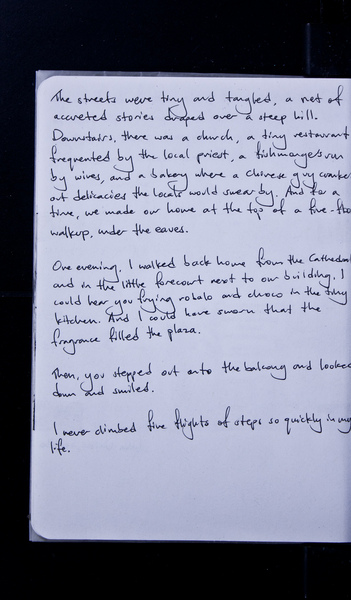 The streets were tiny and tangled, a net of
accreted stories draped over a steep hill.
Downstairs, there was a church, a tiny restaurant
frequented by the local priest, a fishmonger's run
by wives, and a bakery where a chinese guy cranked
out delicacies the locals would swear by. And for a
time, we made our home at the top of a five-flo
walkup, under the eaves.
One evening, I walked back home from the Cathedral
and in the little forecourt next to our building, I
could hear you frying robalo and choco in the tiny
kitchen. And I could have sworn that the
fragrance filled the plaza.
Then, you stepped out onto the balcony and looked
down and smiled.
I never climbed five flights of steps so quickly in my
life.